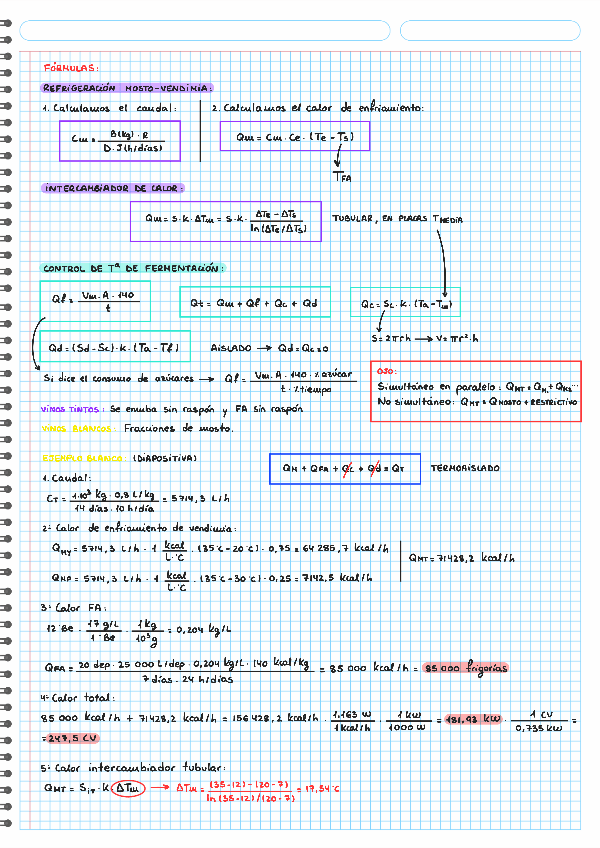 FÓRMULAS:
REFRIGERACIÓN MOSTO-VENDIMIA:
1. Calculamos el caudal:
2. Calculamos el calor de enfriamiento:
Cm = B(kg) · R / D · J (h/días)
Qm = Cm · Ce · (Te - Ts)
TFA
INTERCAMBIADOR DE CALOR:
Qm = S · K · ΔTm = S · K · ΔTe - ΔTs / ln (ΔTe/ΔTs)
TUBULAR, EN PLACAS TMEDIA
CONTROL DE Tª DE FERMENTACIÓN:
Qf = Vm · A · 140 / t
Qt = Qm + Qf + Qc + Qd
Qc = Sc · K · (Ta - Tm)
S = 2πrh → V = πr² · h
Qd = (Sd - Sc) · K · (Ta - Tf)
AISLADO → Qd = Qc = 0
Si dice el consumo de azúcares → Qf = Vm · A · 140 · % azúcar / t · % tiempo
OJO:
Simultáneo en paralelo: QMT = QM1 + QM2...
No simultáneo: QMT = QMOSTO + RESTRICTIVO
VINOS TINTOS: Se encuba sin raspón y FA sin raspón
VINOS BLANCOS: Fracciones de mosto.
EJEMPLO BLANCO: (DIAPOSITIVA)
QM + QFA + Qc + Qd = QT
TERMOAISLADO
1. Caudal:
CT = 1·10⁶ kg · 0,8 L/kg / 14 días · 10 h/día = 5714,3 L/h
2º Calor de enfriamiento de vendimia:
QMV = 5714,3 L/h · 1 kcal / L·ºC · (35ºC - 20ºC) · 0,75 = 64 285,7 kcal/h
QMT = 71428,2 kcal/h
QMP = 5714,3 L/h · 1 kcal / L·ºC · (35ºC - 30ºC) · 0,25 = 7142,5 kcal/h
3º Calor FA:
12 ºBe · 17 g/L / 1 ºBe · 1 kg / 10³ g = 0,204 kg/L
QFA = 20 dep · 25 000 L/dep · 0,204 kg/L · 140 kcal/kg / 7 días · 24 h/días = 85 000 kcal/h = 85 000 frigorías
4º Calor total:
85 000 kcal/h + 71428,2 kcal/h = 156 428,2 kcal/h · 1.163 W / 1 kcal/h · 1 kW / 1000 W = 181,93 kW · 1 CV / 0,735 kW =
= 247,5 CV
5º Calor intercambiador tubular:
QMT = SiT · K · ΔTm → ΔTm = (35-12) - (20-7) / ln (35-12)/(20-7) = 17,54ºC